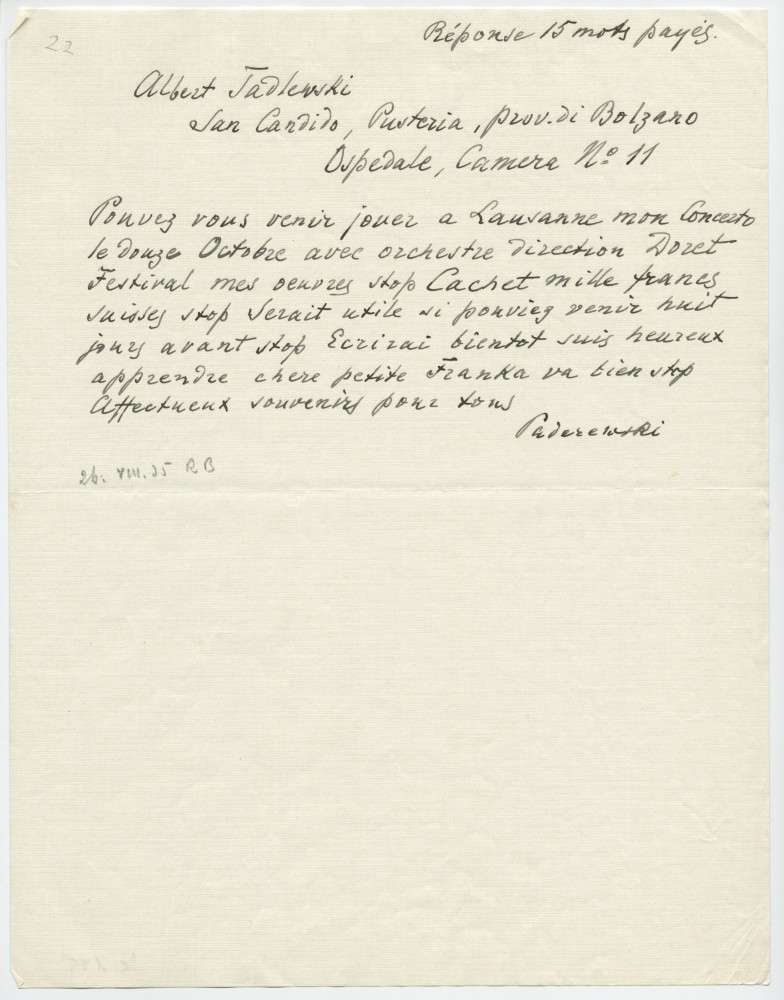 22
Réponse 15 mots payés.
Albert Tadlewski
San Candido, Pusteria, prov. di Bolzano
Ospedale, Camera Nº 11
Pouvez vous venir jouer a Lausanne mon Concerto
le douze Octobre avec orchestre direction Doret
Festival mes oeuvres stop Cachet mille francs
suisses stop Serait utile si pouviez venir huit
jours avant stop Ecrirai bientot suis heureux
apprendre chere petite Franka va bien stop
Affectueux souvenirs pour tous
Paderewski
26. VIII. 35 RB